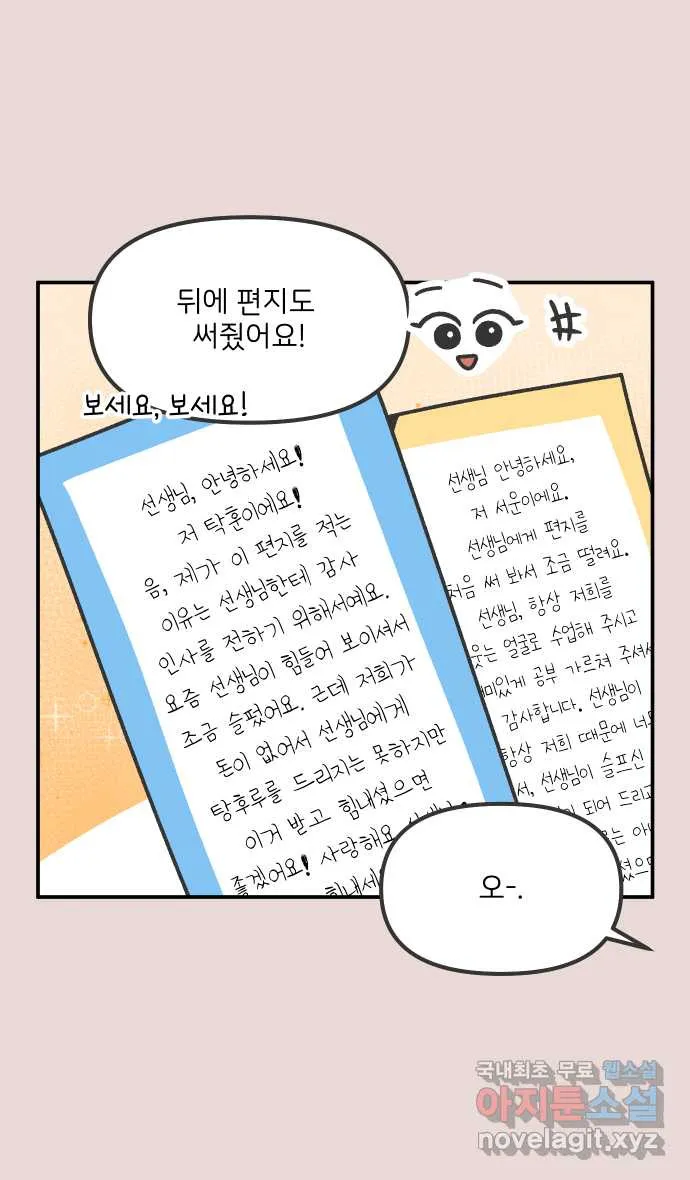 뒤에 편지도
써줬어요!
보세요, 보세요!
선생님, 안녕하세요!
저 탁훈이에요!
음, 제가 이 편지를 적는
이유는 선생님한테 감사
인사를 전하기 위해서예요.
요즘 선생님이 힘들어 보이셔서
조금 슬펐어요. 근데 저희가
돈이 없어서 선생님에게
탕후루를 드리지는 못하지만
이거 받고 힘내셨으면
좋겠어요! 사랑해요
힘내세
선생님 안녕하세요,
저 서운이에요.
선생님에게 편지를
처음 써 봐서 조금 떨려요.
선생님, 항상 저희를
웃는 얼굴로 수업해 주시고
재미있게 공부 가르쳐 주셔서
감사합니다. 선생님이
항상 저희 때문에
선생님이 슬프신
되어 드리고
오-.
국내최초 무료 웹소설
아지툰소설
novelagit.xyz